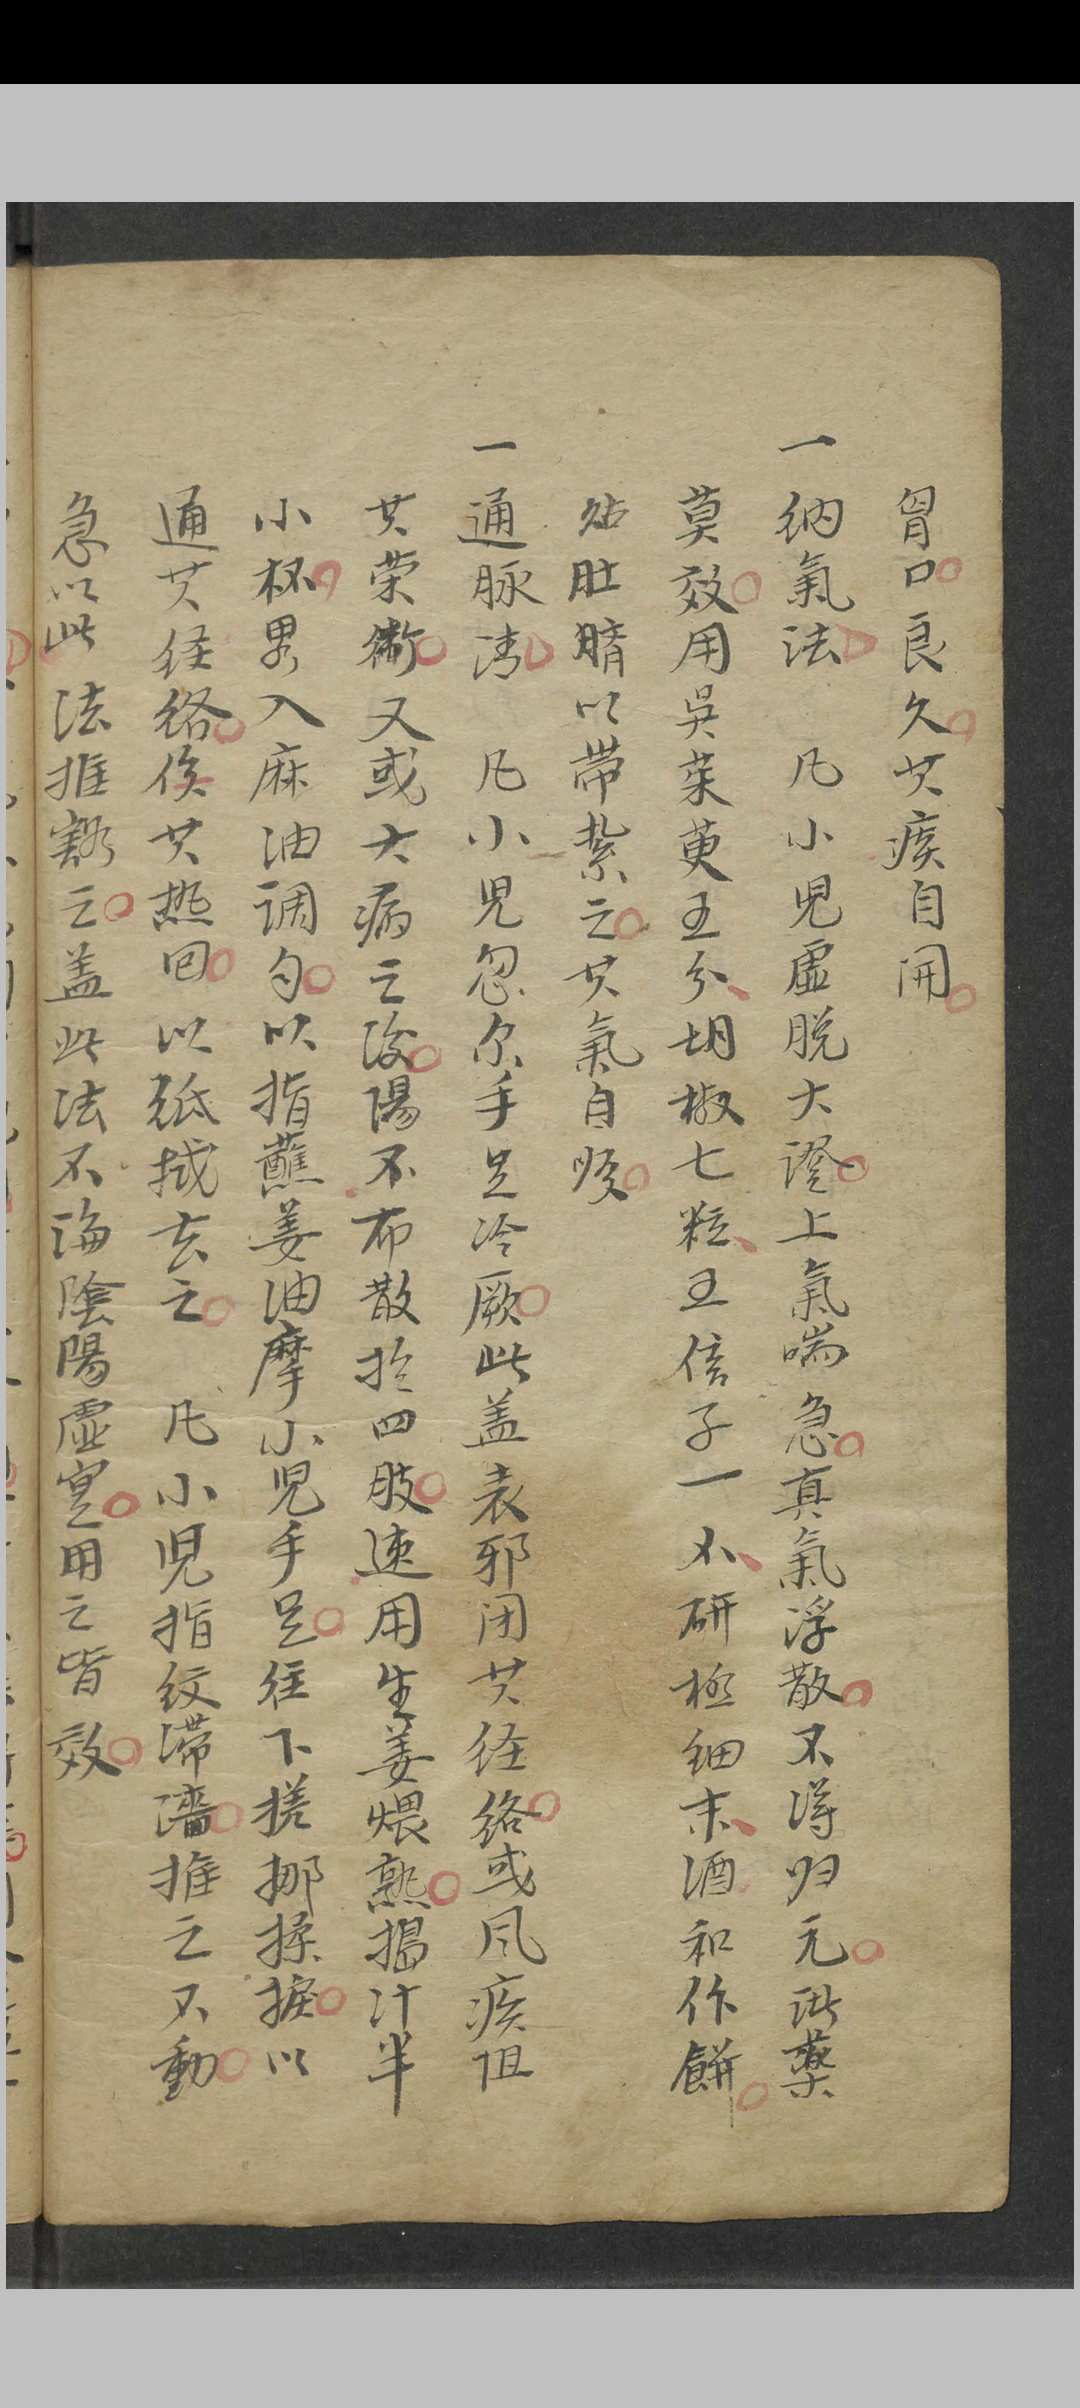 胷口良久其痰自開
一納氣法 凡小児虛脱大證上氣喘急真氣浮散不得归元諸藥
莫效用吳茱萸五分胡椒七粒五倍子一不研極細末酒和作餅
貼肚臍以帶紮之其氣自順
一通脉法 凡小児忽尔手足冷厥此盖表邪闭其经絡或风痰阻
其荣衛又或大病之後陽不布散扵四肢速用生姜煨熟搗汁半
小杯畧入麻油调匀以指蘸姜油摩小児手足徃下搓挪揉捩以
通其经絡俟其热回以紙拭去之 凡小児指纹滞濇推之不動
急以此法推豁之盖此法不論陰陽虛寔用之皆效